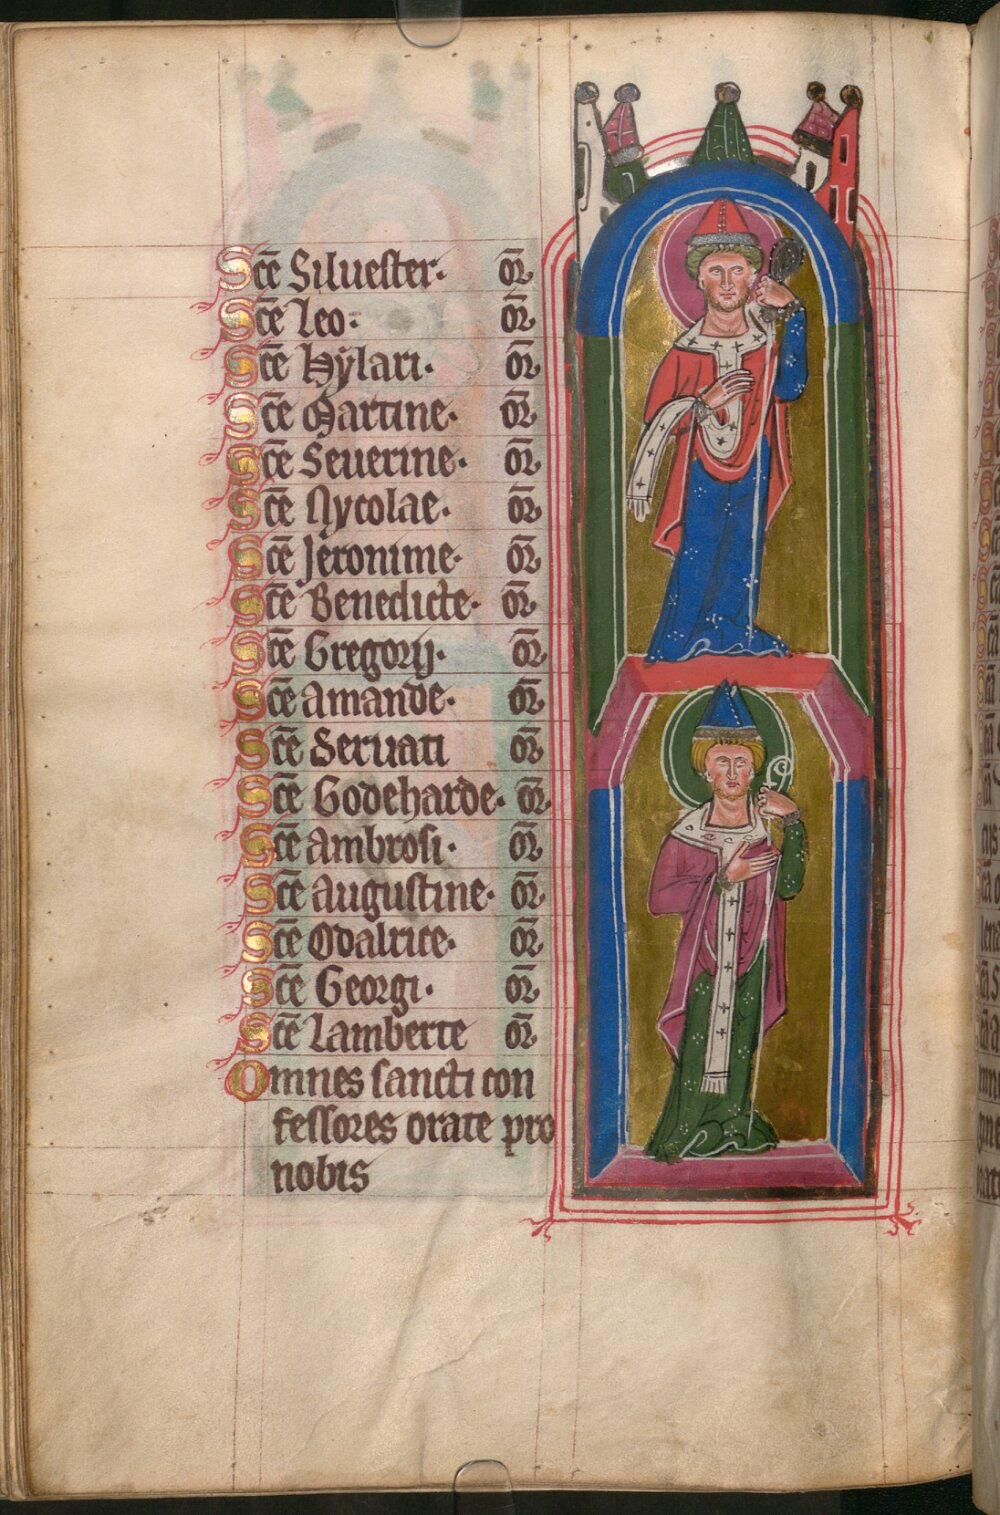 Sc̄e Siluester· or̄
Sc̄e Leo· or̄
Sc̄e Hẏlari· or̄
Sc̄e Martine· or̄
Sc̄e Seuerine· or̄
Sc̄e Nycolae· or̄
Sc̄e Jeronime· or̄
Sc̄e Benedicte· or̄
Sc̄e Gregorij· or̄
Sc̄e Amande· or̄
Sc̄e Seruati or̄
Sc̄e Godeharde· or̄
Sc̄e Ambrosi· or̄
Sc̄e Augustine· or̄
Sc̄e Odalrice· or̄
Sc̄e Georgi· or̄
Sc̄e Lamberte or̄
Omnes sancti con
fessores orate pro
nobis